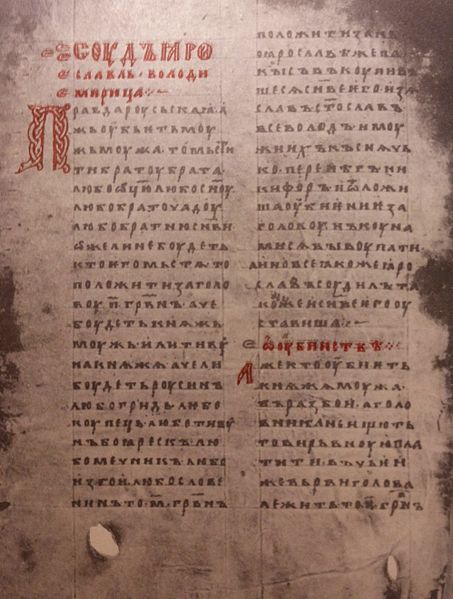 СОУДЪ ꙖРО
СЛАВЛЬ · ВОЛОДИ
МИРИЦА
Правда роусьскаꙗ · а
жь оубьѥть моу
жь моужа · то мьсти
ти братоу брата ·
любо ѡц҃ю любо сн҃оу
любо братоучадоу
любо братню сн҃ви
ѡже ли не боудеть
кто ѥго мьстѧ то
положити за голо
воу · п҃ · грв҃нъ · аче
боудеть кнѧжь
моужь или тивоу
на кнѧжѧ · аче ли
боудеть роусинъ
любо гридь · любо
коупець · любо тивоу
нъ боꙗрескъ · лю
бо мечникъ · любо
изгои · любо слове
нинъ то · м҃ · грв҃нъ
положити зань ·
по ꙗрославѣ же па
кы съвъкоупивъ
шесѧ сн҃ве ѥго · изѧ
славъ · ст҃ославъ
всеволодъ · и моу
жи ихъ · къснѧчь
ко · перенѣгъ · ни
кифоръ · и ѿложи
ша оубиѥниѥ за
головоу · нъ коуна
ми сѧ выкоупати ·
а ино все ꙗкоже ꙗро
славъ соудилъ · та
коже и сн҃ве ѥго оу
ставиша
Ѡ ОУБИИСТВѢ
Аже кто оубиѥть
кнѧжа моужа ·
въ разбои · а голо
вника не ищють
то вирьвноую пла
тити · въ чьѥи
же вьрви голова
лежить то · п҃ · грв҃нъ